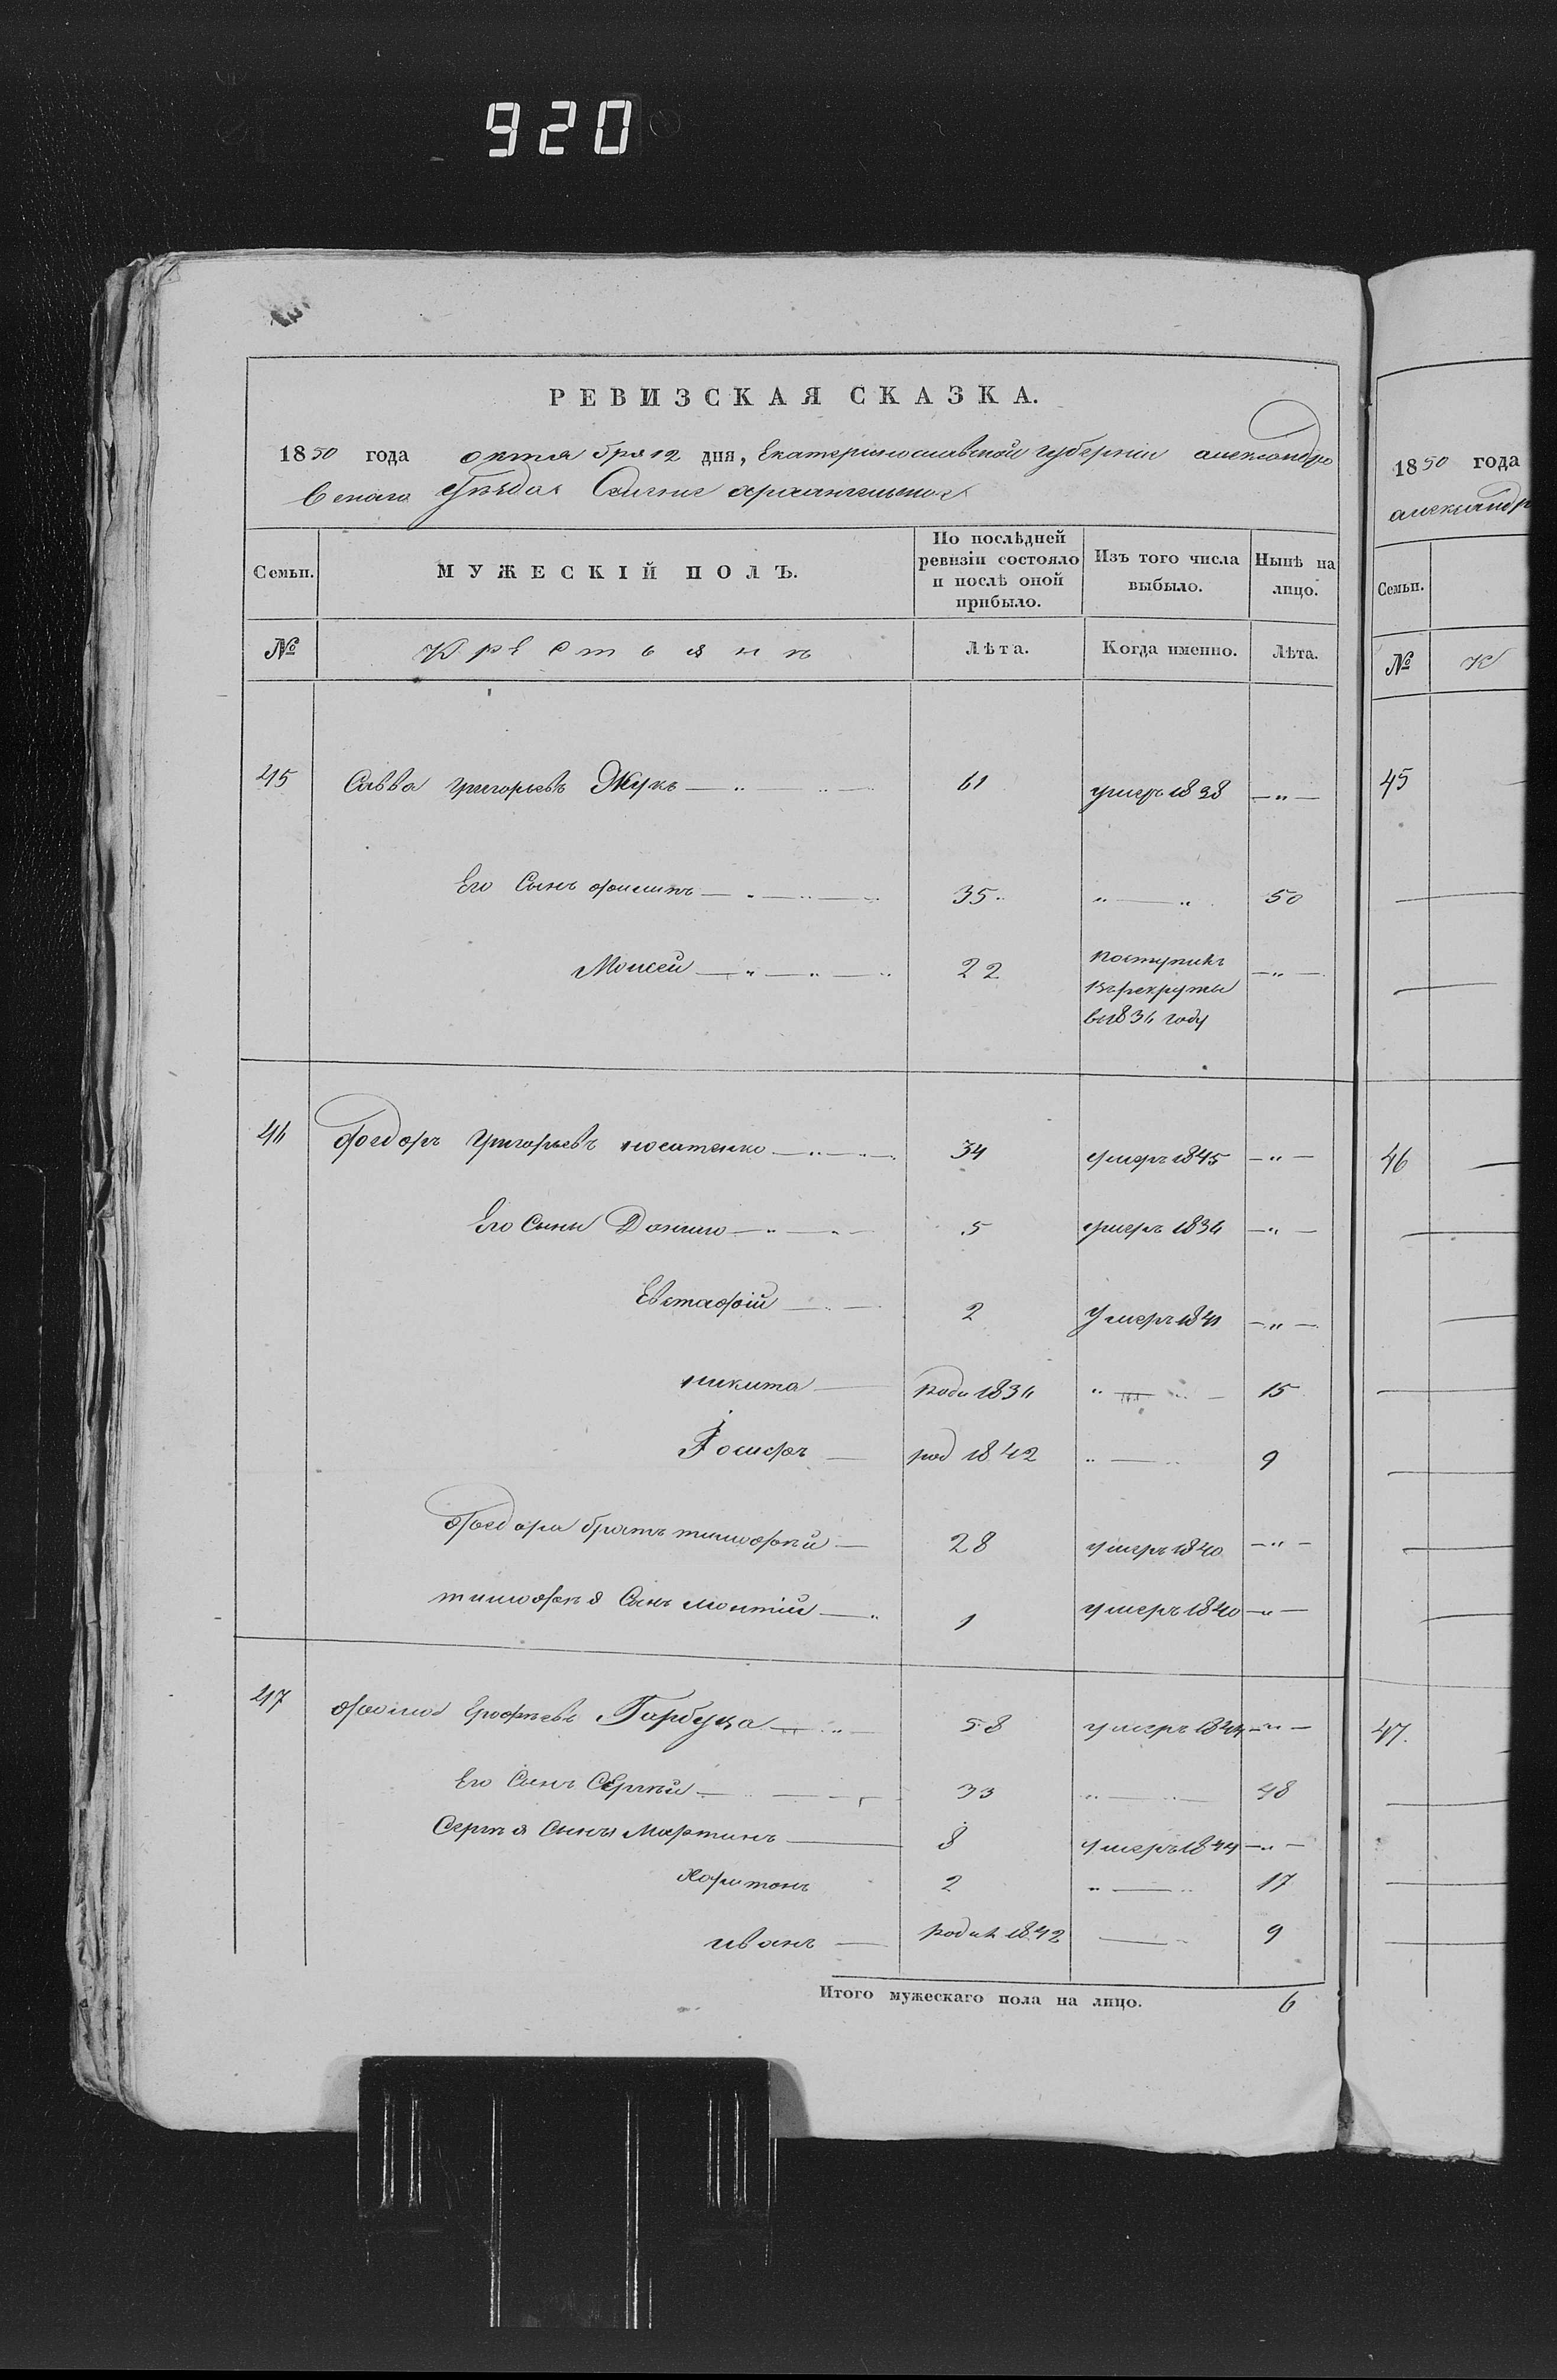 920
РЕВИЗСКАЯ СКАЗКА.
1850 года октября 12 дня, Екатеринославской губерніи александро
вскаго уѣзда Селеніе архангельское
Семьи. МУЖЕСКІЙ ПОЛЪ. По послѣдней ревизіи состояло и послѣ оной прибыло. Изъ того числа выбыло. Нынѣ на лицо.
№ Крестьянъ Лѣта. Когда именно. Лѣта.
45 Савва григорьевъ Жукъ 61 умеръ 1838 — " —
Его Сынъ филипъ 35 " — " 50
Моисей 22 поступилъ — " —
въ рекруты
въ 1834 году
46 федоръ григорьевъ носатенко 34 умеръ 1845 — " —
Его Сыны Данило 5 умеръ 1834 — " —
Евстафій 2 Умеръ 1841 — " —
никита роди 1834 " — 15
Іосифъ род 1842 " — " 9
федора братъ тимофѣй 28 умеръ 1840 — " —
тимофѣя Сынъ леонтій 1 умеръ 1840 — " —
47 фома Ерофѣевъ Гарбуза 58 умеръ 1844 — " —
Его Сынъ Сергѣй 33 " — " 48
Сергѣя Сыны Мартинъ 8 умеръ 1844 — " —
Харитонъ 2 " — " 17
иванъ родил 1842 — " 9
Итого мужескаго пола на лицо. 6
1850 года
александр
Семьи.
№ К
45
46
47.